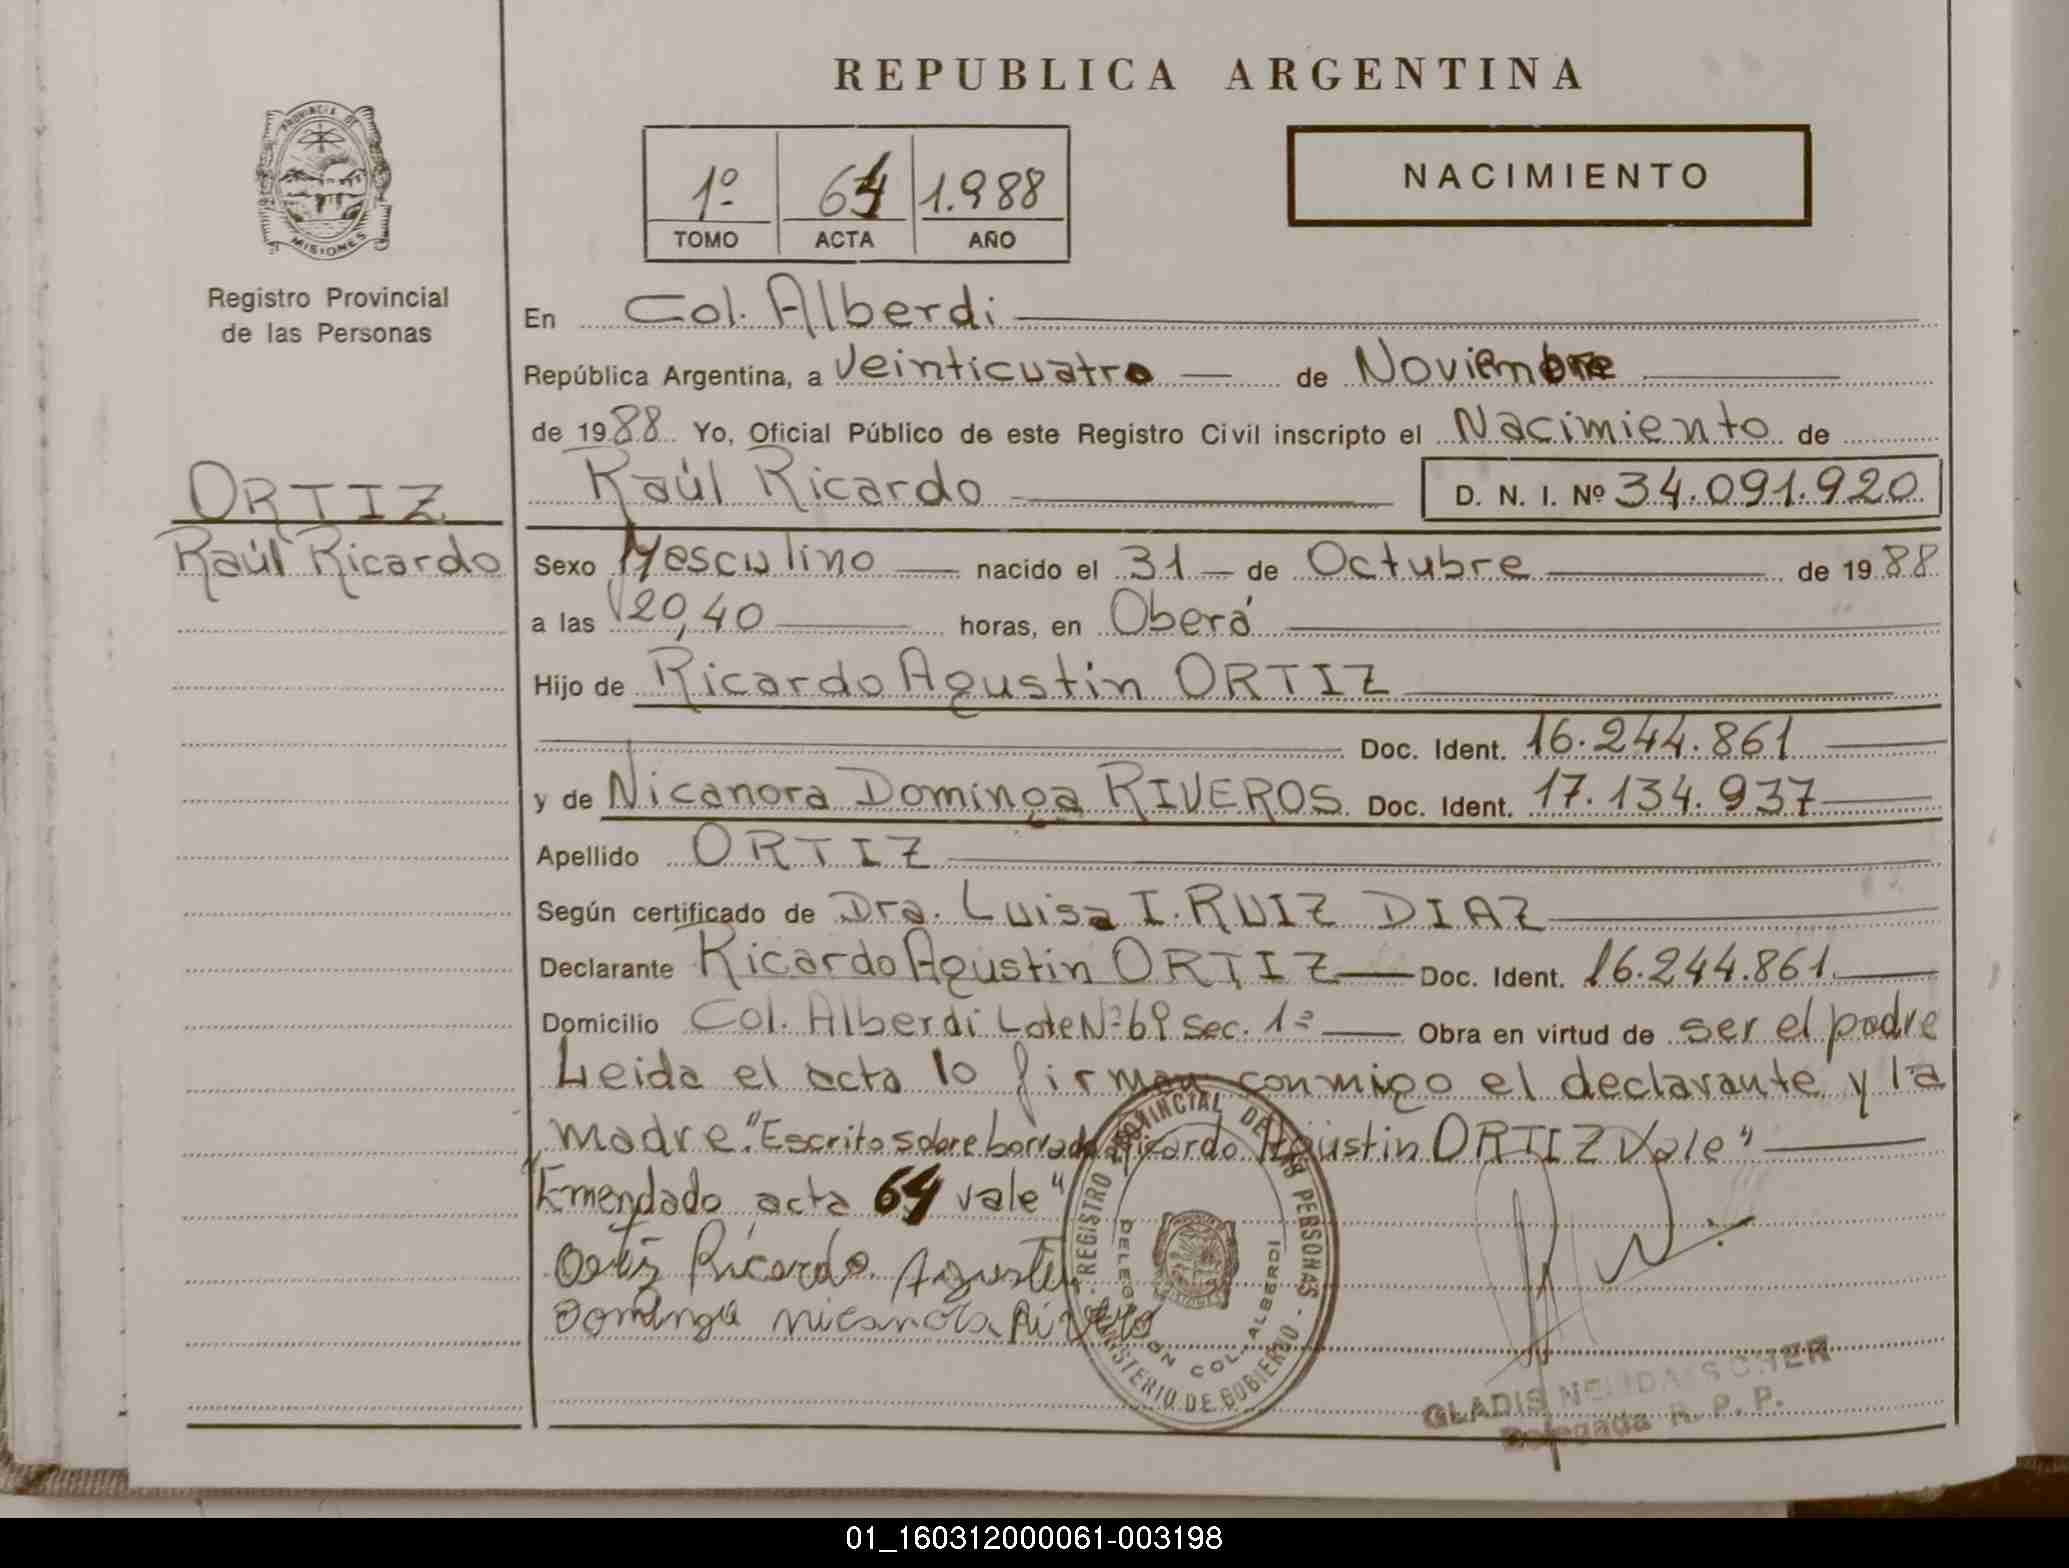 REPUBLICA ARGENTINA
PROVINCIA DE
MISIONES
Registro Provincial
de las Personas
1º 64 1.988
TOMO ACTA AÑO
NACIMIENTO
En Col. Alberdi
República Argentina, a Veinticuatro de Noviembre
de 1988 Yo, Oficial Público de este Registro Civil inscripto el Nacimiento de
Raúl Ricardo D. N. I. Nº 34.091.920
ORTIZ
Raúl Ricardo
Sexo Masculino nacido el 31 de Octubre de 1988
a las 20,40 horas, en Oberá
Hijo de Ricardo Agustin ORTIZ
Doc. Ident. 16.244.861
y de Nicanora Dominga RIVEROS Doc. Ident. 17.134.937
Apellido ORTIZ
Según certificado de Dra. Luisa I. RUIZ DIAZ
Declarante Ricardo Agustin ORTIZ Doc. Ident. 16.244.861
Domicilio Col. Alberdi Lote Nº 69 Sec. 1ª Obra en virtud de ser el padre
Leida el acta lo firman conmigo el declarante y la
madre. "Escrito sobre borrado Ricardo Agustin ORTIZ Vale"
"Emendado acta 64 vale"
Ortiz Ricardo Agustin
Dominga nicanora Rivero
REGISTRO PROVINCIAL DE LAS PERSONAS - MINISTERIO DE GOBIERNO -
DELEGACION COL. ALBERDI
GLADIS
Delegada R. P. P.
01_160312000061-003198